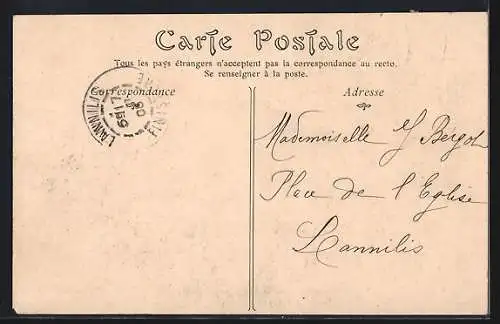 Carte Postale
Tous les pays étrangers n'acceptent pas la correspondance au recto.
Se renseigner à la poste.
Correspondance
Adresse
LANNILIS
FINISTÈRE
Mademoiselle Bergot
Place de l'Eglise
Lannilis